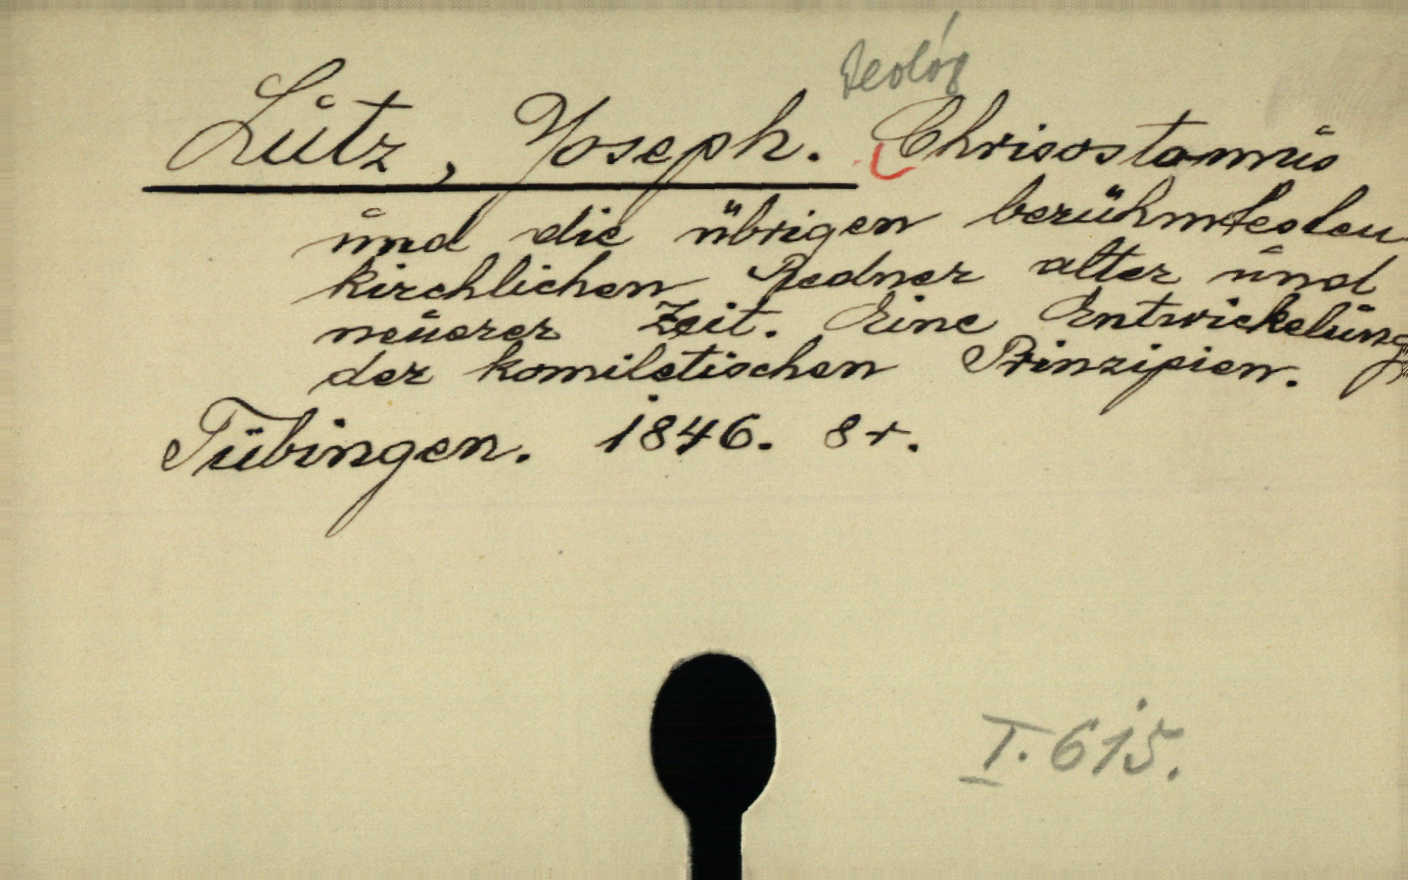 teológ
Lutz, Joseph. Chrisostomus
und die übrigen berühmtesten
kirchlichen Redner alter und
neuerer Zeit. Eine Entwickelung
der komiletischen Prinzipien.
Tübingen. 1846. 8-r.
I. 615.